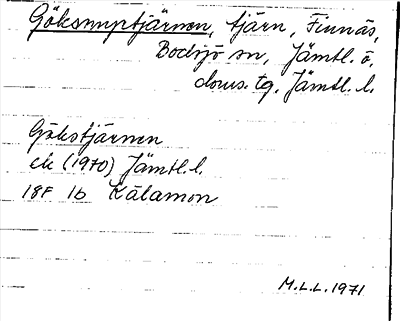 Göksmyrtjärnen, tjärn, Finnäs,
Bodsjö sn, Jämtl. ö.
doms. tg, Jämtl. l.
Gökstjärnen
ek (1970) Jämtl. l.
18F 1b Kälamon
M.L.L. 1971